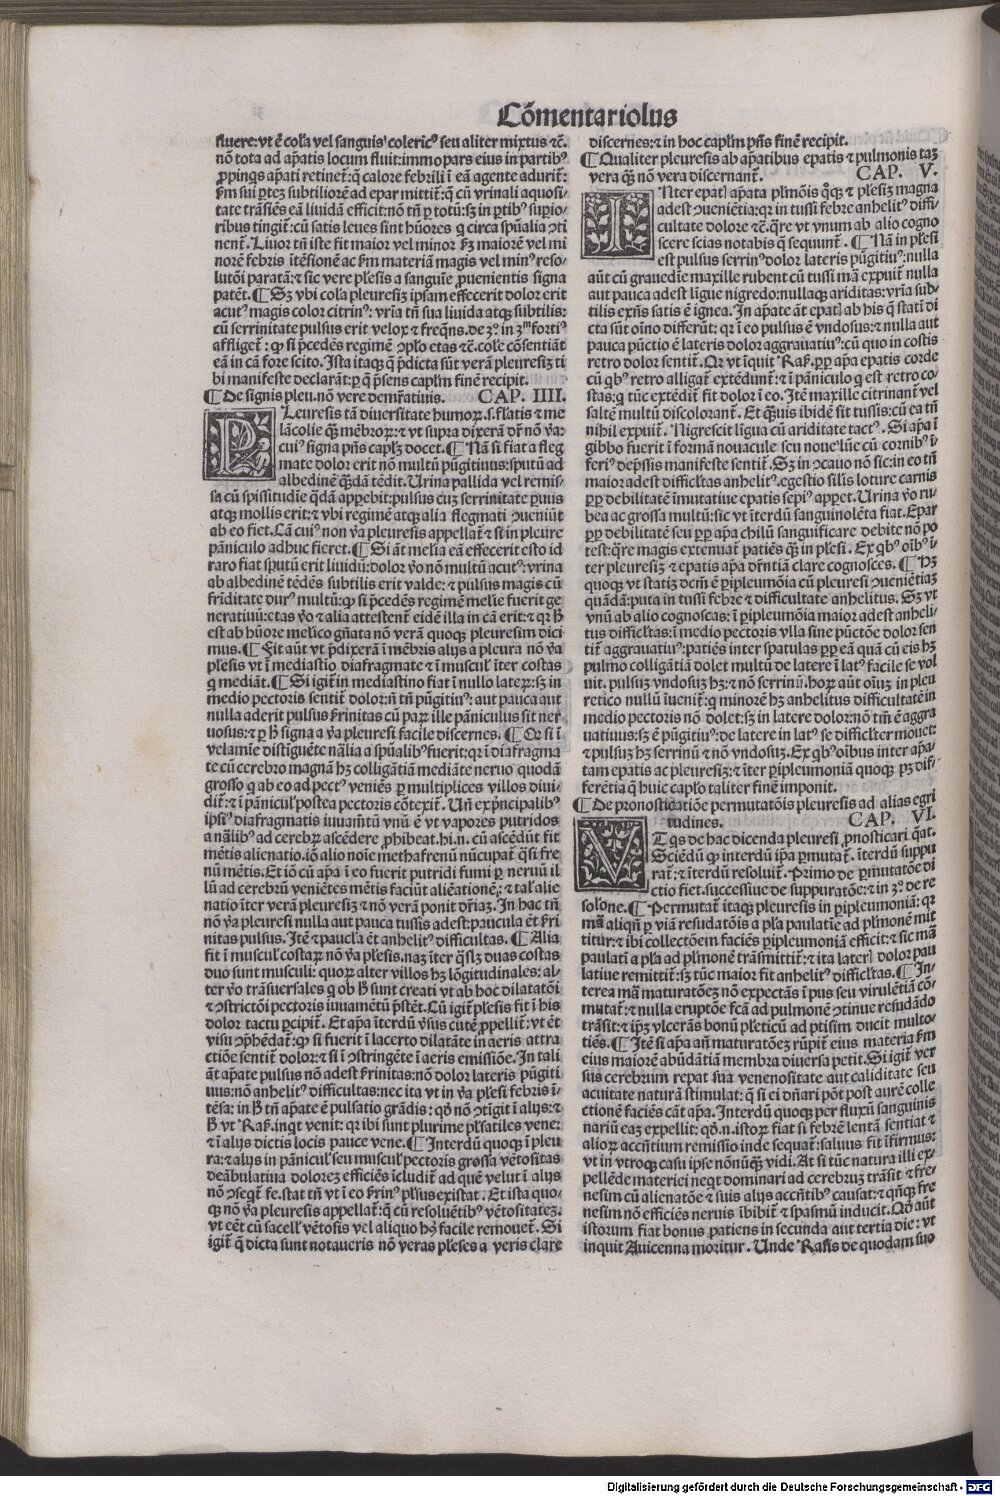 Cōmentariolus
fluere: vt ē coľa vel sanguis colericꝰ seu aliter mixtus ⁊c̄.
nō tota ad ap̄atis locum fluit: immo pars eius in partibꝰ
ꝓpinqs ap̄ati retinet̄: q̄ calore febrili ī eā agente adurit̄:
tate trāsiēs eā liuidā efficit: nō tn̄ ꝑ totū: sꝫ in ꝑtibꝰ suꝑio-
ribus tingit̄: cū satis leues sint hūores q̄ circa sp̄ualia ꝯti
nent̄. Liuor tn̄ iste fit maior vel minor ẜm maiorē vel mi
norē febris ītēsionē ac ẜm materiā magis vel minꝰ reso-
lutōi paratā: ⁊ sic vere pľesis a sanguīe ꝓuenientis signa
patēt. ¶ Sꝫ vbi coľa pleuresiꝫ ipsam effecerit dolor erit
acutꝰ magis color citrinꝰ: vrīa tn̄ sua liuida atqꝫ subtilis:
affliget̄: ꝙ si p̄cedēs regimē ꝯpľo etas ⁊c̄. coľe cōsentiāt
eā in cā fore scito. Ista itaqꝫ q̄ p̄dicta sūt verā pleuresiꝫ ti
bi manifeste declarāt: ꝑ q̄ p̄sens capľm finē recipit.
¶ De signis pleu. nō vere demr̄atiuis. CAP. IIII.
PLeuresis tā diuersitate humoꝝ .s. flatis ⁊ me
lācolie q̄ꝫ mēbroꝝ: ⁊ vt supra dixerā dr̄ nō v̄a:
cuiꝰ signa pn̄s capľꝫ docet. ¶ Nā si fiat a fleg
mate dolor erit nō multū pūgitiuus: sputū ad
albedinē q̄ꝫdā tēdit. Urina pallida vel remis-
sa cū spissitudīe q̄dā apꝑebit: pulsus cuꝫ serrinitate ꝑuuis
atqꝫ mollis erit: ⁊ vbi regimē atqꝫ alia flegmati ꝯueniūt
ab eo fiet. Cā cuiꝰ non v̄a pleuresis appellat̄ ⁊ si in pleure
pāniculo adhuc fieret. ¶ Si āt mel̄ia eā effecerit esto id
raro fiat sputū erit liuidū: dolor v̄o nō multū acutꝰ: vrina
ab albedinē tēdēs subtilis erit valde: ⁊ pulsus magis cū
frīditate durꝰ multū: ꝙ si p̄cedēs regimē mel̄ie fuerit ge
neratiuū: etas v̄o ⁊ alia attestent̄ eidē illa in cā erit: ⁊ qr h̄
est ab hūore mel̄ico gn̄ata nō verā quoqꝫ pleuresim dici
mus. ¶ Fit aūt vt p̄dixerā ī mēbris alijs a pleura nō v̄a
pľesis vt ī mediastīo diafragmate ⁊ ī musculꝭ īter costas
q̄ mediāt. ¶ Si igit̄ in mediastino fiat ī nullo lateꝝ: sꝫ in
medio pectoris sentit̄ dolor: n̄ tn̄ pūgitiuꝰ: aut pauca aut
nulla aderit pulsus ẜrinitas cū paꝝ ille pāniculus sit ner
uosus: ⁊ ꝑ h̄ signa a v̄a pleuresi facile discernes. ¶ Qr si ī
velamīe distīguēte nālia a spūalibꝰ fuerit: qr ī diafragma
te cū cerebro magnā hꝫ colligātiā mediāte neruo quodā
grosso q ab eo ad pectꝰ veniēs ꝑ multiplices villos diui-
dit̄: ⁊ ī pāniculꝭ postea pectoris cōtexit̄. Un̄ exprīncipalibꝰ
ipsiꝰ diafragmatis iuuam̄tū vnū ē vt vapores putridos
a nālibꝰ ad cerebꝝ ascēdere ꝓhibeat. hi .n. cū ascēdūt fit
mētis alienatio. iō alio noīe methafrenū nūcupat̄ q̄si fre
nū mētis. Et iō cū ap̄a ī eo fuerit putridi fumi ꝑ neruū il
lū ad cerebrū veniētes mētis faciūt aliēationē: ⁊ talꝭ alie
natio īter verā pleuresiꝫ ⁊ nō verā ponit dr̄iaꝫ. In hac tn̄
nō v̄a pleuresi nulla aut pauca tussis adest: paticula ēt ẜri
nitas pulsus. Itē ⁊ paucľa ēt anhelitꝰ difficultas. ¶ Alia
fit ī musculꝭ costaꝝ nō v̄a pľesis. naꝫ īter q̄sľꝫ duas costas
duo sunt musculi: quoꝝ alter villos hꝫ lōgitudinales: al-
ter v̄o trāsuersales q ob h̄ sunt creati vt ab hoc dilatatōi
⁊ ꝯstrictōi pectoris iuuamētū p̄stēt. Cū igit̄ pľesis fit ī his
dolor tactu ꝑcipit̄. Et ap̄a īterdū v̄sus cutē ꝓpellit̄: vt ēt
visu ꝯp̄hēdat̄: ꝙ si fuerit ī lacerto dilatāte in aeris attra
ctiōe sentit̄ dolor: ⁊ si ī ꝯstringēte ī aeris emissiōe. In tali
āt ap̄ate pulsus nō adest ẜrinitas: nō dolor lateris pūgiti
uus: nō anhelitꝰ difficultas: nec ita vt in v̄a pľesi febris ī-
tēsa: in h̄ tn̄ ap̄ate ē pulsatio grādis: qd̄ nō ꝯtīgit ī alijs: ⁊
h̄ vt Raẜ. inqt venit: qr ibi sunt plurime pľsatiles vene:
⁊ ī alijs dictis locis pauce vene. ¶ Interdū quoqꝫ ī pleu
ra: ⁊ alijs in pāniculꝭ seu musculꝭ pectoris grossa vētositas
deābulatiua dolorez efficiēs īcludit̄ ad quē velut ī alijs
nō ꝯseqt̄ fe. stat tn̄ vt ī eo ẜrinꝰ pľsus existat. Et ista quo-
qꝫ nō v̄a pleuresis appellat̄: q̄ cū resoluētibꝰ vētositatez.
vt cēt cū sacellꝭ vētosis vel aliquo hꝰ facile remouet̄. Si
igit̄ q̄ dicta sunt notaueris nō veras pľeses a veris clare
discernes: ⁊ in hoc capľm pn̄s finē recipit.
¶ Qualiter pleuresis ab ap̄atibus epatis ⁊ pulmonis taꝫ
vera q̄ꝫ nō vera discernant̄. CAP. V.
INter epatꝭ ap̄ata pľmōis q̄qꝫ ⁊ pľesiꝫ magna
adest ꝯueniētia: qr in tussi febre anhelitꝰ diffi-
cultate dolore ⁊c̄. q̄re vt vnum ab alio cogno
scere scias notabis q̄ sequunt̄. ¶ Nā in pľesi
est pulsus serrinꝰ dolor lateris pūgitiuꝰ: nulla
aūt cū grauedīe maxille rubent cū tussi mā expuit̄ nulla
aut pauca adest līgue nigredo: nullaqꝫ ariditas: vrīa sub-
tilis exn̄s satis ē ignea. In ap̄ate āt epatꝭ ab his q̄ statī di
cta sūt oīno differūt: qr ī eo pulsus ē vndosus: ⁊ nulla aut
pauca pūctio ē lateris dolor aggrauatiuꝰ: cū quo in costis
retro dolor sentit̄. Qr vt īquit Raẜ. ꝓꝑ ap̄a epatis corde
cū qbꝰ retro alligat̄ extēdunt̄: ⁊ ī pāniculo q est retro co-
stas: q tūc extēdit̄ fit dolor ī eo. Itē maxille citrinant̄ vel
saltē multū discolorant̄. Et q̄ꝫuis ibidē sit tussis: cū ea tn̄
nihil expuit̄. Nigrescit līgua cū ariditate tactꝰ. Si ap̄a ī
gibbo fuerit ī formā nouacule seu noue lūe cū cornibꝰ ī-
feriꝰ dep̄ssis manifeste sentit̄. Sꝫ in ꝯcauo nō sic: in eo tn̄
maior adest difficľtas anhelitꝰ. egestio silis loture carnis
ꝓꝑ debilitatē īmutatiue epatis sepiꝰ apꝑet. Urina v̄o ru-
bea ac grossa multū: sic vt īterdū sanguinolēta fiat. Epar
ꝓꝑ debilitatē seu ꝓꝑ ap̄a chilū sanguificare debite nō po
test: q̄re magis extenuat̄ patiēs q̄ꝫ in pľesi. Ex qbꝰ oībꝰ ī-
ter pleuresiꝫ ⁊ epatis ap̄a dr̄ntiā clare cognosces. ¶ Hꝫ
quoqꝫ vt statiꝫ dcm̄ ē ꝑipleumōia cū pleuresi ꝯueniētiaꝫ
quādā: puta in tussi febre ⁊ difficultate anhelitus. Sꝫ vt
vnū ab alio cognoscas: ī ꝑipleumōia maior adest anheli-
tus difficľtas: ī medio pectoris vlla sine pūctōe dolor sen
tit̄ aggrauatiuꝰ: patiēs inter spatulas ꝓꝑ eā quā cū eis hꝫ
pulmo colligātiā dolet multū de latere ī latꝰ facile se vol
uit. pulsuꝫ vndosuꝫ hꝫ: ⁊ nō serrinū. hoꝝ aūt oīuꝫ in pleu
retico nullū īuenit̄: q minorē hꝫ anhelitus difficultatē in
medio pectoris nō dolet: sꝫ in latere dolor: nō tm̄ ē aggra
uatiuus: sꝫ ē pūgitiuꝰ: de latere in latꝰ se difficľter mouet:
⁊ pulsuꝫ hꝫ serrinū ⁊ nō vndosuꝫ. Ex qbꝰ oībus inter ap̄a-
tam epatis ac pleuresiꝫ: ⁊ īter ꝑipleumoniā quoqꝫ pꝫ dif-
ferētia q̄ huic capľo taliter finē imponit.
¶ De pronosticatiōe permutatōis pleuresis ad alias egri
tudines. CAP. VI.
VT qs de hac dicenda pleuresi ꝓnosticari q̄at.
Sciēdū ꝙ interdū ip̄a ꝑmutat̄. īterdū suppu
rat̄: ⁊ īterdū resoluit̄. Primo de ꝑmutatōe di
ctio fiet. successiue de suppuratōe: ⁊ in 3ꝰ. de re
soľone. ¶ Permutat̄ itaqꝫ pleuresis in ꝑipleumoniā: qr
mā aliqn̄ ꝑ viā resudatōis a pľa paulatīe ad pľmonē mit
titur: ⁊ ibi collectōem faciēs ꝑipleumoniā efficit: ⁊ sic mā
paulatī a pľa ad pľmonē trāsmittit̄: ⁊ ita laterꝭ dolor pau
latiue remittit̄: sꝫ tūc maior fit anhelitꝰ difficľtas. ¶ In-
terea mā maturatōeꝫ nō expectās ī pus seu virulētiā cō-
mutat̄: ⁊ nulla eruptōe fc̄ā ad pulmonē ꝯtinue resudādo
trāsit: ⁊ ip̄ꝫ vlcerās bonū pľeticū ad ptisim ducit multo-
tiēs. ¶ Itē si ap̄a an̄ maturatōeꝫ rūpit̄ eius materia ẜm
eius maiorē abūdātiā membra diuersa petit. Si igit̄ ver
sus cerebrum repat sua venenositate aut caliditate seu
acuitate naturā stimulat: q̄ si ei dn̄ari pōt post aurē colle
ctionē faciēs cāt ap̄a. Interdū quoqꝫ per fluxū sanguinis
nariū eaꝫ expellit: qd̄ .n. istoꝝ fiat si febrē lentā sentiat ⁊
alioꝝ accn̄tium remissio inde sequat̄: saluus fit īfirmus:
vt in vtroqꝫ casu ipse nōnūqꝫ vidi. At si tūc natura illi ex-
pellēde materiei neqt dominari ad cerebruꝫ trāsit ⁊ fre-
nesim cū alienatōe ⁊ suis alijs accn̄tibꝰ causat: ⁊ qn̄qꝫ fre
nesim nō efficiēs neruis ībibit̄ ⁊ spasmū inducit. Qd̄ aūt
istorum fiat bonus patiens in secunda aut tertia die: vt
inquit Auicenna moritur. Unde Rasis de quodam suo
Digitalisierung gefördert durch die Deutsche Forschungsgemeinschaft - DFG